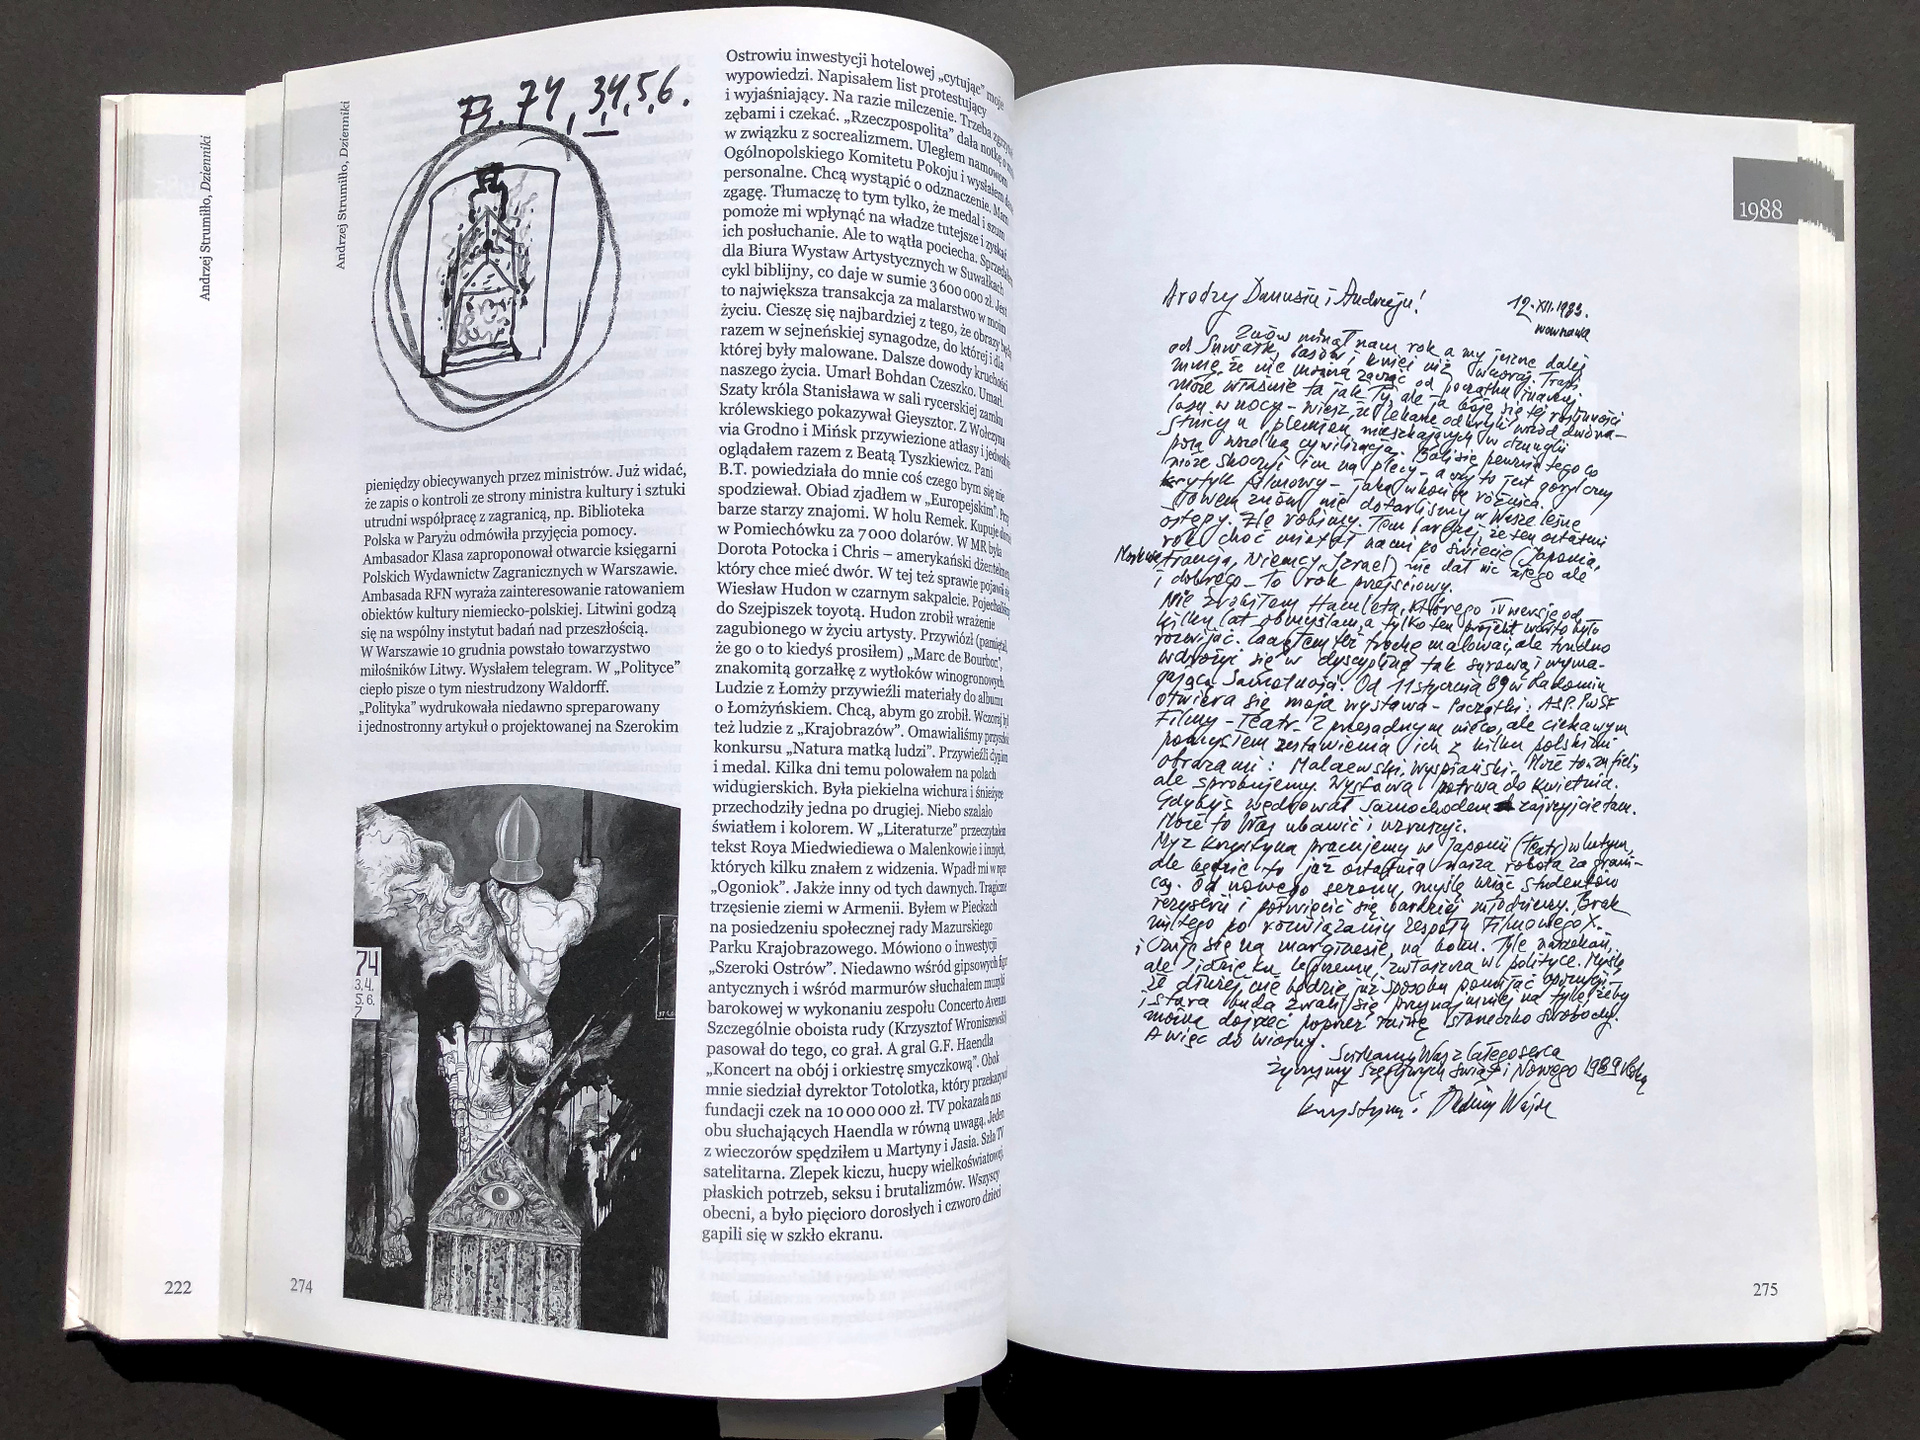 Andrzej Strumiłło, Dzienniki
222
Andrzej Strumiłło, Dzienniki
73. 74, 3,4,5,6.
pieniędzy obiecywanych przez ministrów. Już widać,
że zapis o kontroli ze strony ministra kultury i sztuki
utrudni współpracę z zagranicą, np. Biblioteka
Polska w Paryżu odmówiła przyjęcia pomocy.
Ambasador Klasa zaproponował otwarcie księgarni
Polskich Wydawnictw Zagranicznych w Warszawie.
Ambasada RFN wyraża zainteresowanie ratowaniem
obiektów kultury niemiecko-polskiej. Litwini godzą
się na wspólny instytut badań nad przeszłością.
W Warszawie 10 grudnia powstało towarzystwo
miłośników Litwy. Wysłałem telegram. W „Polityce”
ciepło pisze o tym niestrudzony Waldorff.
„Polityka” wydrukowała niedawno spreparowany
i jednostronny artykuł o projektowanej na Szerokim
74
3.4.
5.6.
7
274
Ostrowiu inwestycji hotelowej „cytując” moje
wypowiedzi. Napisałem list protestujący
i wyjaśniający. Na razie milczenie. Trzeba
zębami i czekać. „Rzeczpospolita” dała notkę o
w związku z socrealizmem. Uległem namowom
Ogólnopolskiego Komitetu Pokoju i wysłałem
personalne. Chcą wystąpić o odznaczenie. Mam
zgagę. Tłumaczę to tym tylko, że medal i szum
pomoże mi wpłynąć na władze tutejsze i zyskać
ich posłuchanie. Ale to wątła pociecha.
dla Biura Wystaw Artystycznych w Suwałkach
cykl biblijny, co daje w sumie 3 600 000 zł. Jest
to największa transakcja za malarstwo w moim
życiu. Cieszę się najbardziej z tego, że obrazy będą
razem w sejneńskiej synagodze, do której i dla
której były malowane. Dalsze dowody kruchości
naszego życia. Umarł Bohdan Czeszko. Umarł
Szaty króla Stanisława w sali rycerskiej zamku
królewskiego pokazywał Gieysztor. Z Wołczyna
via Grodno i Mińsk przywiezione atłasy i jedwabie
oglądałem razem z Beatą Tyszkiewicz. Pani
B.T. powiedziała do mnie coś czego bym się nie
spodziewał. Obiad zjadłem w „Europejskim”. Przy
barze starzy znajomi. W holu Remek. Kupuje
w Pomiechówku za 7 000 dolarów. W MR była
Dorota Potocka i Chris – amerykański dżentelmen
który chce mieć dwór. W tej też sprawie pojawił się
Wiesław Hudon w czarnym sakpalcie. Pojechaliśmy
do Szejpiszek toyotą. Hudon zrobił wrażenie
zagubionego w życiu artysty. Przywiózł (pamiętał,
że go o to kiedyś prosiłem) „Marc de Bourbor”,
znakomitą gorzałkę z wytłoków winogronowych.
Ludzie z Łomży przywieźli materiały do albumu
o Łomżyńskiem. Chcą, abym go zrobił. Wczoraj byli
też ludzie z „Krajobrazów”. Omawialiśmy
konkursu „Natura matką ludzi”. Przywieźli dyplom
i medal. Kilka dni temu polowałem na polach
widugierskich. Była piekielna wichura i śnieżyce
przechodziły jedna po drugiej. Niebo szalało
światłem i kolorem. W „Literaturze” przeczytałem
tekst Roya Miedwiediewa o Malenkowie i innych,
których kilku znałem z widzenia. Wpadł mi w ręce
„Ogoniok”. Jakże inny od tych dawnych. Tragiczne
trzęsienie ziemi w Armenii. Byłem w Pieckach
na posiedzeniu społecznej rady Mazurskiego
Parku Krajobrazowego. Mówiono o inwestycji
„Szeroki Ostrów”. Niedawno wśród gipsowych figur
antycznych i wśród marmurów słuchałem muzyki
barokowej w wykonaniu zespołu Concerto Avenna
Szczególnie oboista rudy (Krzysztof Wroniszewski)
pasował do tego, co grał. A grał G.F. Haendla
„Koncert na obój i orkiestrę smyczkową”. Obok
mnie siedział dyrektor Totolotka, który przekazywał
fundacji czek na 10 000 000 zł. TV pokazała nas
obu słuchających Haendla w równą uwagą. Jeden
z wieczorów spędziłem u Martyny i Jasia. Sala TV
satelitarna. Zlepek kiczu, hucpy wielkoświatowej,
płaskich potrzeb, seksu i brutalizmów. Wszyscy
obecni, a było pięcioro dorosłych i czworo dzieci
gapili się w szkło ekranu.
1988
Drodzy Danusiu i Andrzeju!
12.XII.1988.
Warszawa
Znów minął nam rok a my jeszcze dalej
od Suwałk, lasów i kniei niż wczoraj.
że nie można zacząć od początku inaczej
może właśnie ta jak Ty, ale ja boję się tej roślinności
lasu w nocy – wiesz, że lekarze odkryli wśród
plemion mieszkających w dżungli
cywilizacją. Boli się pewnie tego co
może skoczyć im na plecy – a czy to jest goryl czy
krytyk filmowy – jaka w końcu różnica.
Słowem znów nie dotarliśmy w Wasze leśne
ostępy. Źle robimy. Tem bardziej, że ten ostatni
rok choć miotał nami po świecie (Japonia,
Moskwa Francja, Niemcy, Izrael) nie dał nic złego ale
i dobrego – to rok przejściowy.
Nie zrobiłem Hamleta, którego IV wersję od
kilku lat obmyślam, a tylko ten projekt warto było
rozwijać. Zacząłem też trochę malować, ale trudno
wdrożyć się w dyscyplinę tak surową i wyma-
gającą samotności. Od 11 stycznia 89 w Radomiu
otwiera się moja wystawa – Początki: ASP. PWSF
Filmy – Teatr. Z przesadnym nieco, ale ciekawym
pomysłem zestawienia ich z kilku polskimi
obrazami: Malczewski, Wyspiański.
ale spróbujemy. Wystawa potrwa do kwietnia.
Gdybyś wędrował samochodem zajrzyjcie tam.
Może to Was ubawić i wzruszyć.
My z Krystyną pracujemy w Japonii (Teatr) w lutym,
ale będzie to już ostatnia nasza robota za grani-
cą. Od nowego sezonu, myślę wziąć studentów
reżyserii i poświęcić się bardziej młodzieży. Brak
mi tego po rozwiązaniu Zespołu Filmowego X.
i czuję się na marginesie, na boku. Tyle narzekań,
ale idzie ku lepszemu, zwłaszcza w polityce. Myślę
że dłużej nie będzie już sposobu pomijać opozycji
i stara buda zwali się przynajmniej na tyle, żeby
można dojrzeć poprzez ruinę słoneczko swobody.
A więc do wiosny.
Ściskamy Was z całego serca
Życzymy szczęśliwych świąt i Nowego 1989 Roku
Krystyna i Andrzej Wajda
275